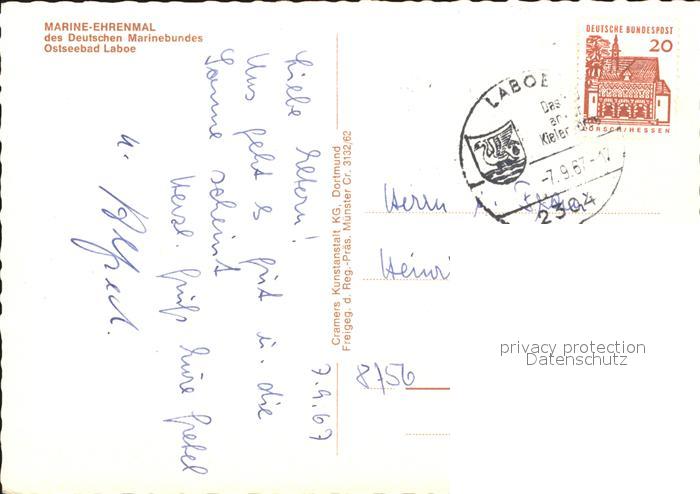 MARINE-EHRENMAL
des Deutschen Marinebundes
Ostseebad Laboe
7.9.67
Liebe Eltern!
Uns geht es gut u. die
Sonne scheint
Herzl. Grüße Eure Gretel
u. Alfred.
Cramers Kunstanstalt KG, Dortmund
Freigeg. d. Reg.-Präs. Münster Cr. 3132/62
DEUTSCHE BUNDESPOST
20
LORSCH/HESSEN
LABOE
Kieler
-7.9.67-17
2304
Herrn
Heinri
8756
privacy protection
Datenschutz